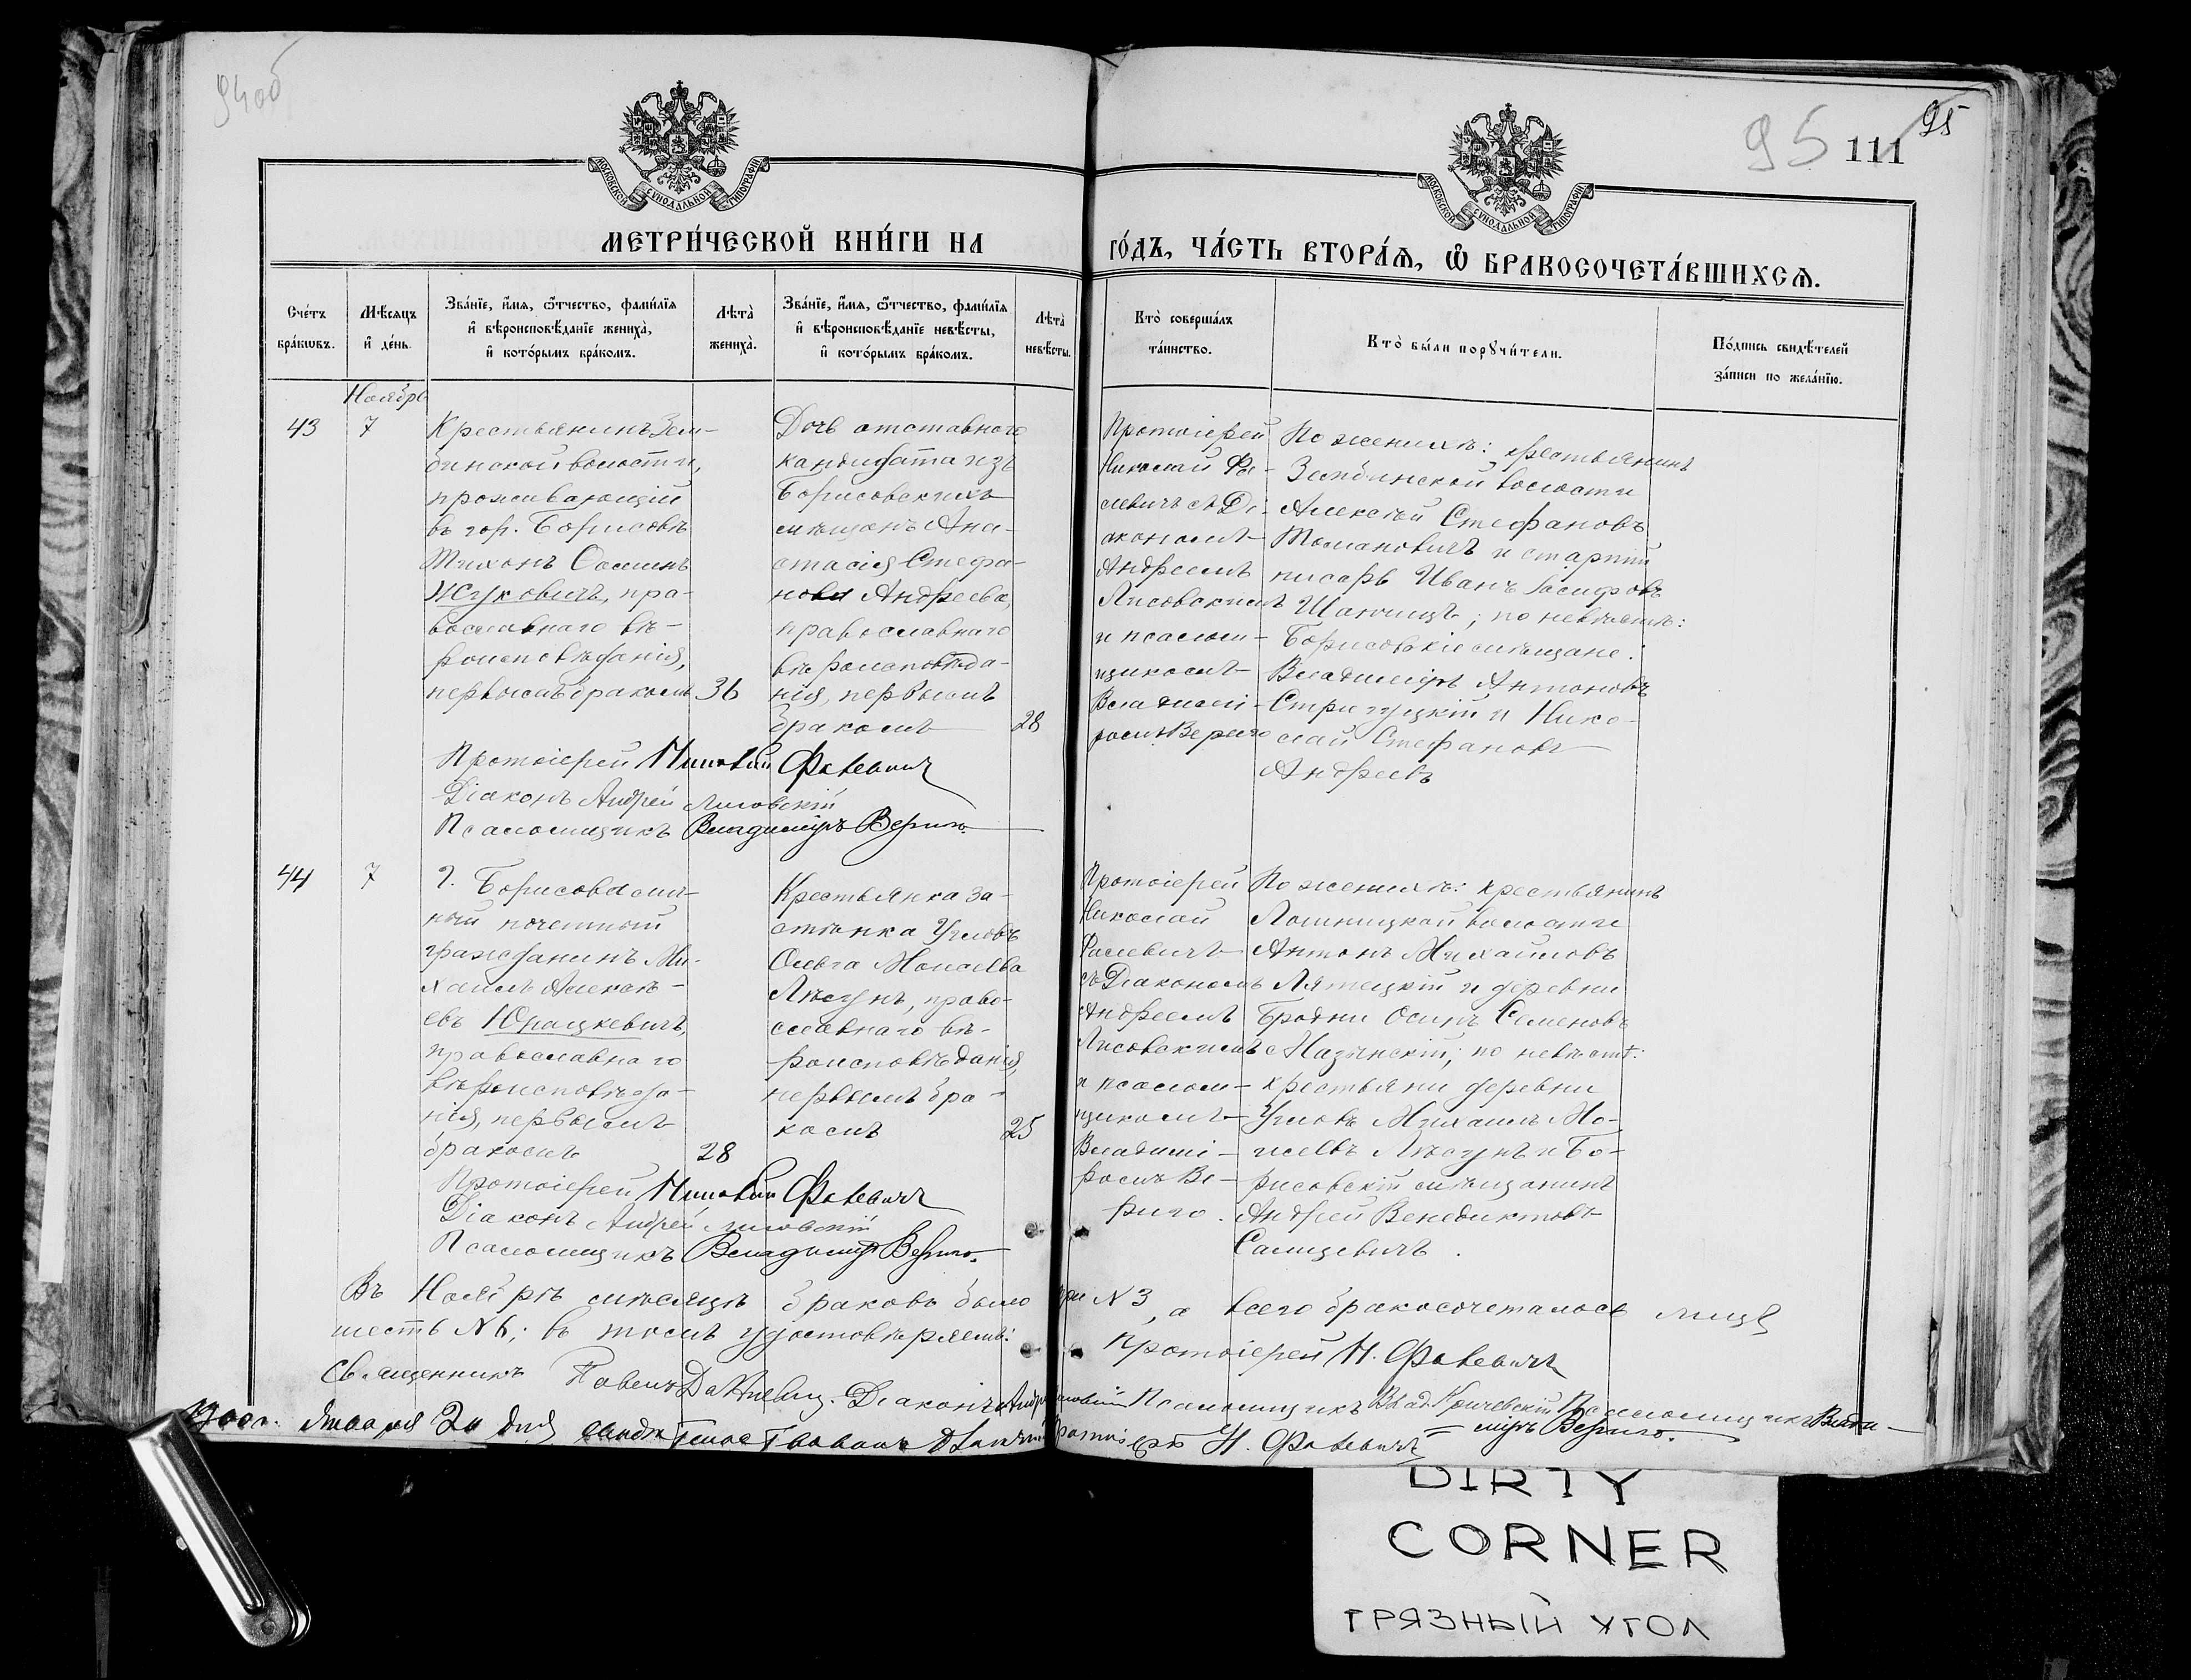 94об
95
111
95
МОСКОВСКОЙ СУНОДАЛЬНОЙ ТИПОГРАФІИ
МОСКОВСКОЙ СУНОДАЛЬНОЙ ТИПОГРАФІИ
МЕТРИ́ЧЕСКОЙ КНИ́ГИ НА
ГО́ДЪ, ЧА́СТЬ ВТОРА́Ѧ, Ѽ БРАКОСОЧЕТА́ВШИХСѦ.
Сче́тъ
бра́кωвъ.
Мѣ́сяцъ
и҆ де́нь.
Зва́нїе, и҆́мя, ѻ҆́тчество, фами́лїя
и҆ вѣроисповѣ́данїе жениха̀,
и҆ кото́рымъ бра́комъ.
Лѣта̀
жениха̀.
Зва́нїе, и҆́мя, ѻ҆́тчество, фами́лїя
и҆ вѣроисповѣ́данїе невѣ́сты,
и҆ кото́рымъ бра́комъ.
Лѣта̀
невѣ́сты.
Кто̀ соверша́лъ
та́инство.
Кто̀ бы́ли порꙋчи́тели.
По́дпись свидѣ́телей
за́писи по жела́нїю.
Ноябрь
43
7
Крестьянинъ Зем-
бинской волости,
проживающій
въ гор. Борисовѣ
Тихонъ Осиповъ
Жуковичъ, пра-
вославнаго вѣ-
роисповѣданія,
первымъ бракомъ
36
Дочь отставного
кандидата изъ
Борисовскихъ
мѣщанъ Ана-
стасія Стефа-
нова Андреева,
православнаго
вѣроисповѣда-
нія, первымъ
бракомъ
28
Протоіерей
Николай Фа-
левичъ съ Ді-
акономъ
Андреемъ
Лисовскимъ
и псалом-
щикомъ
Владимі-
ромъ Вериго
По женихѣ: крестьянинъ
Зембинской волости
Алексѣй Стефановъ
Томановичъ и старшій
писарь Иванъ Іосифовъ
по невѣстѣ:
Борисовскіе мѣщане:
Владиміръ Антоновъ
Стригуцкій и Нико-
лай Стефановъ
Андреевъ
Протоіерей Николай Фалевичъ
Діаконъ Андрей Лисовскій
Псаломщикъ Владиміръ Вериго.
44
7
г. Борисова лич-
ный почетный
гражданинъ Ми-
хаилъ Алексѣ-
евъ Юрацкевичъ,
православнаго
вѣроисповѣда-
нія, первымъ
бракомъ
28
Крестьянка за-
стѣнка Угловъ
Ольга Моисеева
Лѣсунъ, право-
славнаго вѣ-
роисповѣданія,
первымъ бра-
комъ
25
Протоіерей
Николай
Фалевичъ
съ Діакономъ
Андреемъ
Лисовскимъ
и псалом-
щикомъ
Владимі-
ромъ Ве-
риго.
По женихѣ: крестьянинъ
Лошницкой волости
Антонъ Михайловъ
Лятецкій и деревни
Бродни Осипъ Семеновъ
по невѣстѣ:
крестьяни деревни
Угловъ Михаилъ Мо-
исеевъ Лѣсунъ и Бо-
рисовскій мѣщанинъ
Андрей Венедиктовъ
Самцевичъ.
Протоіерей Николай Фалевичъ
Діаконъ Андрей Лисовскій
Псаломщикъ Владиміръ Вериго.
Въ Ноябрѣ мѣсяцѣ браковъ было три №3, а всего бракосочеталось лицъ
шесть №6; въ томъ удостовѣряемъ: Протоіерей Н. Фалевичъ
Священникъ Павелъ Діаконъ Андрей Лисовскій Псаломщикъ Влад. Кричевскій Псаломщикъ Влади-
міръ Вериго.
1900 г. Января 20 дня Н. Фалевичъ
DIRTY
CORNER
ГРЯЗНЫЙ УГОЛ